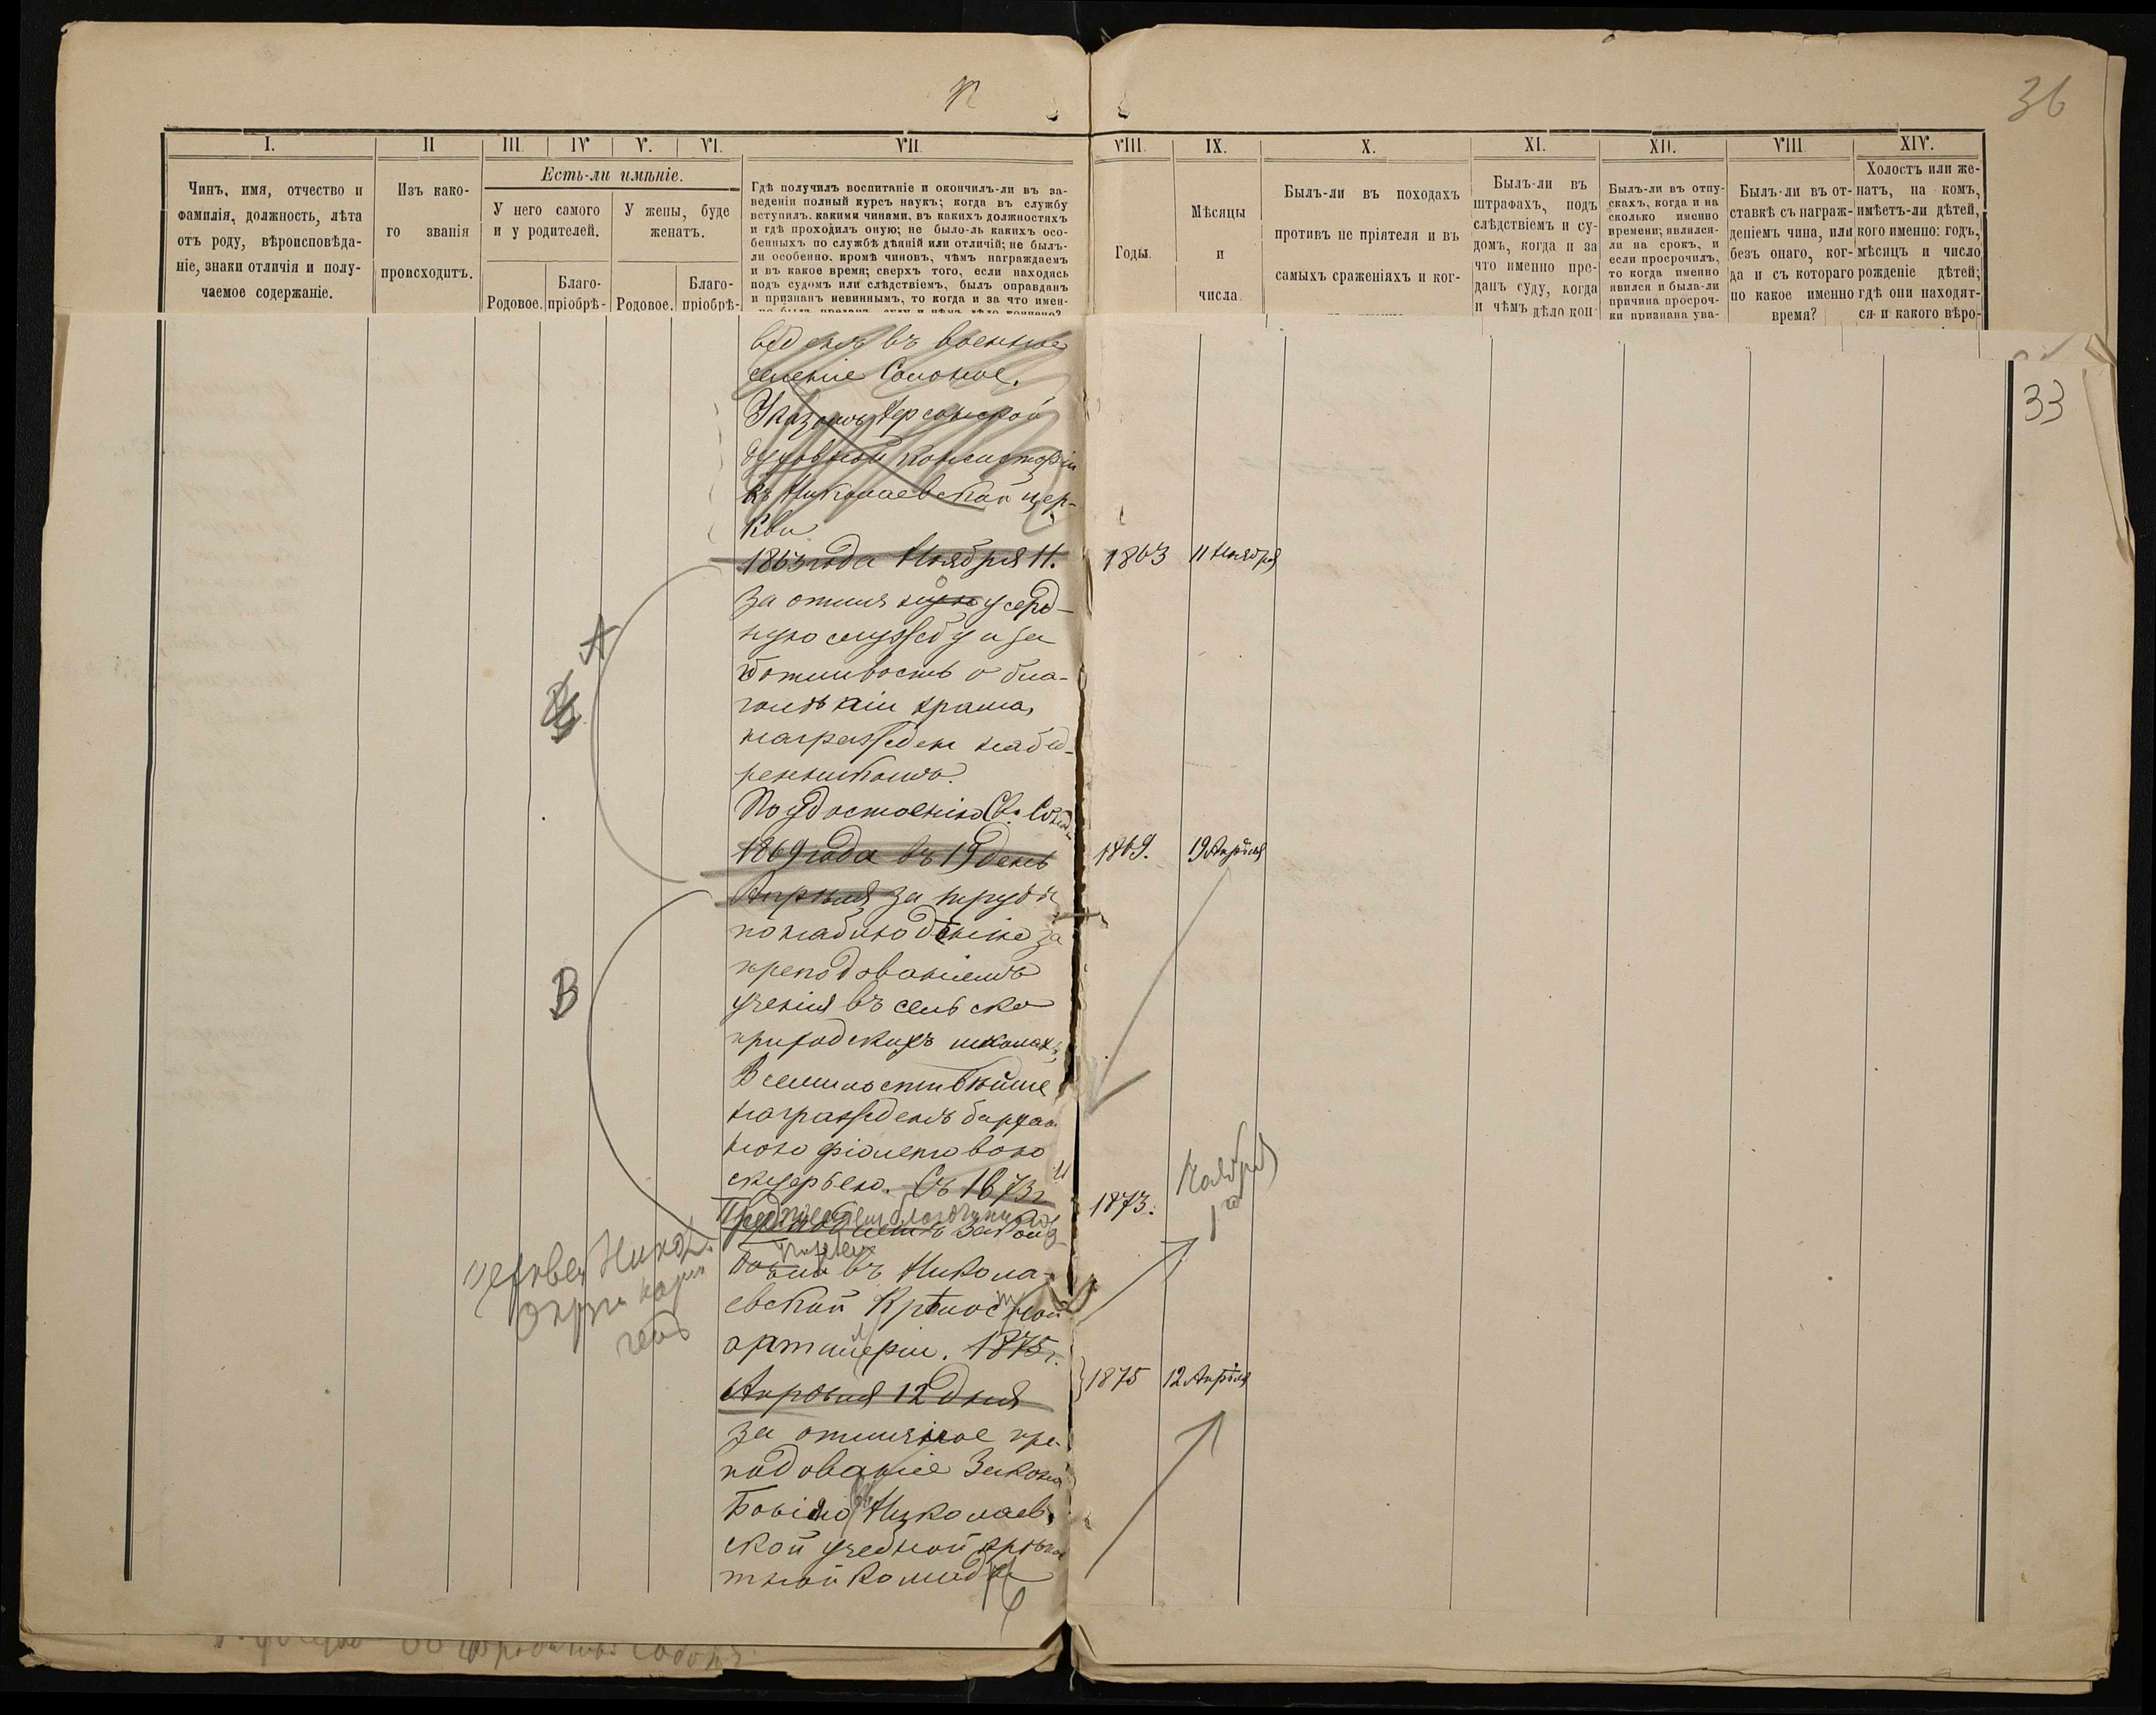 36
I. II III. IV V. VI. VII. VIII. IX. X. XI. XII. VIII XIV.
Чинъ, имя, отчество и
фамилія, должность, лѣта
отъ роду, вѣроисповѣда-
ніе, знаки отличія и полу-
чаемое содержаніе.
Изъ како-
го званія
происходитъ.
Есть-ли имѣніе.
У него самого
и у родителей.
У жены, буде
женатъ.
Родовое.
Благо-
пріобрѣ-
Родовое.
Благо-
пріобрѣ-
Гдѣ получилъ воспитаніе и окончилъ-ли въ за-
веденіи полный курсъ наукъ; когда въ службу
вступилъ, какими чинами, въ какихъ должностяхъ
и гдѣ проходилъ оную; не было-ль какихъ осо-
бенныхъ по службѣ дѣяній или отличій; не былъ-
ли особенно, кромѣ чиновъ, чѣмъ награждаемъ
и въ какое время; сверхъ того, если находясь
подъ судомъ или слѣдствіемъ, былъ оправданъ
и признанъ невиннымъ, то когда и за что имен-
но былъ преданъ суду и чѣмъ дѣло кончено?
Годы.
Мѣсяцы
и
числа.
Былъ-ли въ походахъ
противъ не пріятеля и въ
самыхъ сраженіяхъ и ког-
Былъ-ли въ
штрафахъ, подъ
слѣдствіемъ и су-
домъ, когда и за
что именно пре-
данъ суду, когда
и чѣмъ дѣло кон-
Былъ-ли въ отпу-
скахъ, когда и на
сколько именно
времени; являлся-
ли на срокъ, и
если просрочилъ,
то когда именно
явился и была-ли
причина просроч-
ки признана ува-
Былъ-ли въ от-
ставкѣ съ награж-
деніемъ чина, или
безъ онаго, ког-
да и съ котораго
по какое именно
время?
Холостъ или же-
натъ, на комъ,
имѣетъ-ли дѣтей,
кого именно: годъ,
мѣсяцъ и число
рожденіе дѣтей;
гдѣ они находят-
ся и какого вѣро-
33
веденъ въ военное
селеніе Солоное.
Указомъ Херсонской
духовной консисторіи
къ Николаевской цер-
кви
1863 года Ноября 11.
1863 11 Ноября
за отлич ную усерд-
ную службу и за
ботливость о бла-
голѣпіи храма,
награжденъ набед-
ренникомъ.
По удостоенію Св. Синода
1869 года въ 19 день
1869. 19 Апрѣля
Апрѣля за труды
по наблюденію за
преподаваніемъ
ученія въ сельско
приходскихъ школахъ,
Всемилостивѣйше
награжденъ бархат
ною фіолетовою
скуфьею. Съ 1873 г
1873. Ноября 1го
А
В
въ Никола-
евской Крѣпостной
артилеріи. 1875 г.
Апрѣля 12 дня
1875 12 Апрѣля
за отличное пре-
подованіе Закона
Божія въ Николаев-
ской учебной крѣпос
тной команде